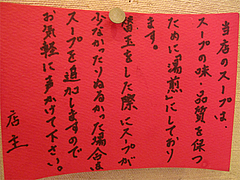 当店のスープは、
スープの味、品質を保つ
ために「湯煎」にしており
ます。
替玉をした際にスープが
少なかったりぬるかった場合は
スープを追加しますので
お気軽に声かけて下さい。
店主